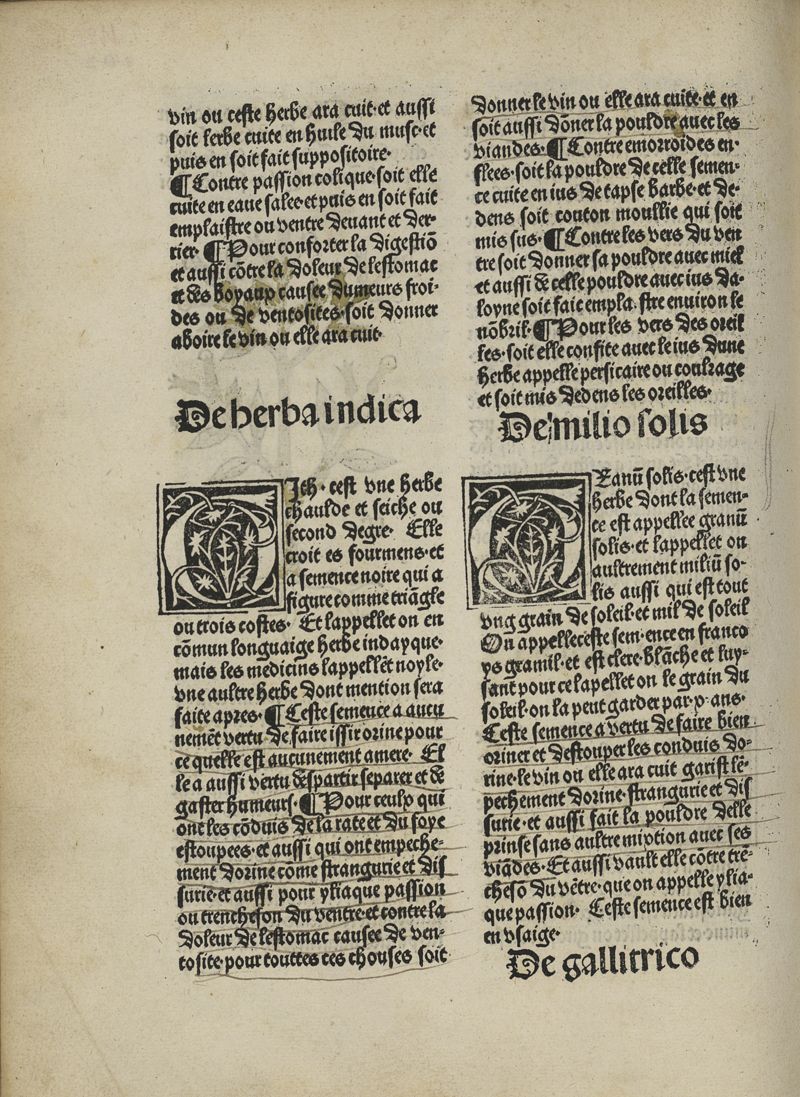 vin ou ceste herbe ara cuit·et aussi
soit lerbe cuite en huile du musc·et
puis en soit fait suppositoire·
¶Contre passion colique·soit elle
cuite en eaue salee·et puis en soit fait
emplaistre ou ventre devant et der-
rier·¶Pour conforter la digestiō
et aussi cōtre la doleur de lestomac
et des boyaux causee dumeurs froi-
des ou de ventosites·soit donner
a boire le vin ou elle ara cuit·
De herba indica
Ith·cest vne herbe
chaulde et seiche ou
second degre· Elle
croit es fourmens·et
a semence noire qui a
figure comme triāgle
ou trois costes· Et lappellet on en
cōmun longuaige herbe indayque·
mais les medicins lappellēt noyle·
vne aultre herbe dont mention sera
faite apres·¶Ceste semence a aucu
nemēt vertu de faire issir orine pour
ce quelle est aucunement amere· El
le a aussi vertu despartir separer et de
gaster humeurs·¶Pour ceulx qui
ont les cōduis de la rate et du foye
estoupees·et aussi qui ont empeche-
ment dorine cōme strangurie et dis
surie·et aussi pour yliaque passion
ou trencheson du ventre·et contre la
doleur de lestomac causee de ven-
tosite·pour touttes ces chouses soit
donner le vin ou elle ara cuite·et en
soit aussi dōner la pouldre avec les
viandes·¶Contre emorroides en-
flees·soit la pouldre de celle semen-
ce cuite en ius de tapse barbe·et de-
dens soit couton moullie qui soit
mis sus·¶Contre les vers du ven
tre soit donner sa pouldre avec miel
et aussi de celle pouldre avec ius da-
loyne soit faic empla·stre environ le
nōbril·¶Pour les vers des oreil
les·soit elle confite avec le ius dune
herbe appelle persicaire ou coulrage
et soit mis dedens les oreilles·
De milio solis
Ranū solis·cest vne
herbe dont la semen-
ce est appellee granū
solis·et lappellet on
aultrement miliū so-
lis aussi qui est tout
vng grain de soleil·et mil de soleil
On appelle ceste sem·ence en franco
ys gramil·et est clere·blāche et luy-
sant pour ce lapellet on le grain du
soleil·on la peut garder par·x·ans·
Ceste semence a vertu de faire bien
oriner et destouper les conduis do-
rine·le vin ou elle ara cuit garist lē-
pechement dorine·strangurie et dis
surie·et aussi fait la pouldre delle
prinse sans aultre mixtion avec ses
viādes·Et aussi vault elle cōtre trē-
chesō du vētre·que on appelle ylia-
que passion· Ceste semence est bien
en vsaige·
De gallitrico